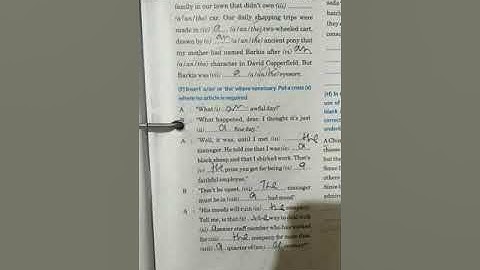 family in our town that didn't own (iii)
(a/an/the) car. Our daily shopping trips were
made in (iv) a (a/an/the) two-wheeled cart,
drawn by (v) an (a/an/the) ancient pony that
my mother had named Barkis after (vi) an
(a/an/the) character in David Copperfield. But
Barkis was (vii) a (a/an/the) eyesore.
(f) Insert 'a/an' or 'the' where necessary. Put a cross (x)
where no article is required.
A : "What (i) an awful day!"
B : "What happened, dear. I thought it's just
(ii) a fine day."
A : "Well, it was, until I met (iii) the
manager. He told me that I was (iv) a
black sheep and that I shirked work. That's
(v) the prize you get for being (vi) a
faithful employee."
B : "Don't be upset. (vii) The manager
must be in (viii) a bad mood"
A : "His moods will ruin (ix) the company.
Tell me, is that (x) the way to deal with
(xi) a senior staff member who has worked
for (xii) the company for more than
(xiii) a quarter of (xiv) a